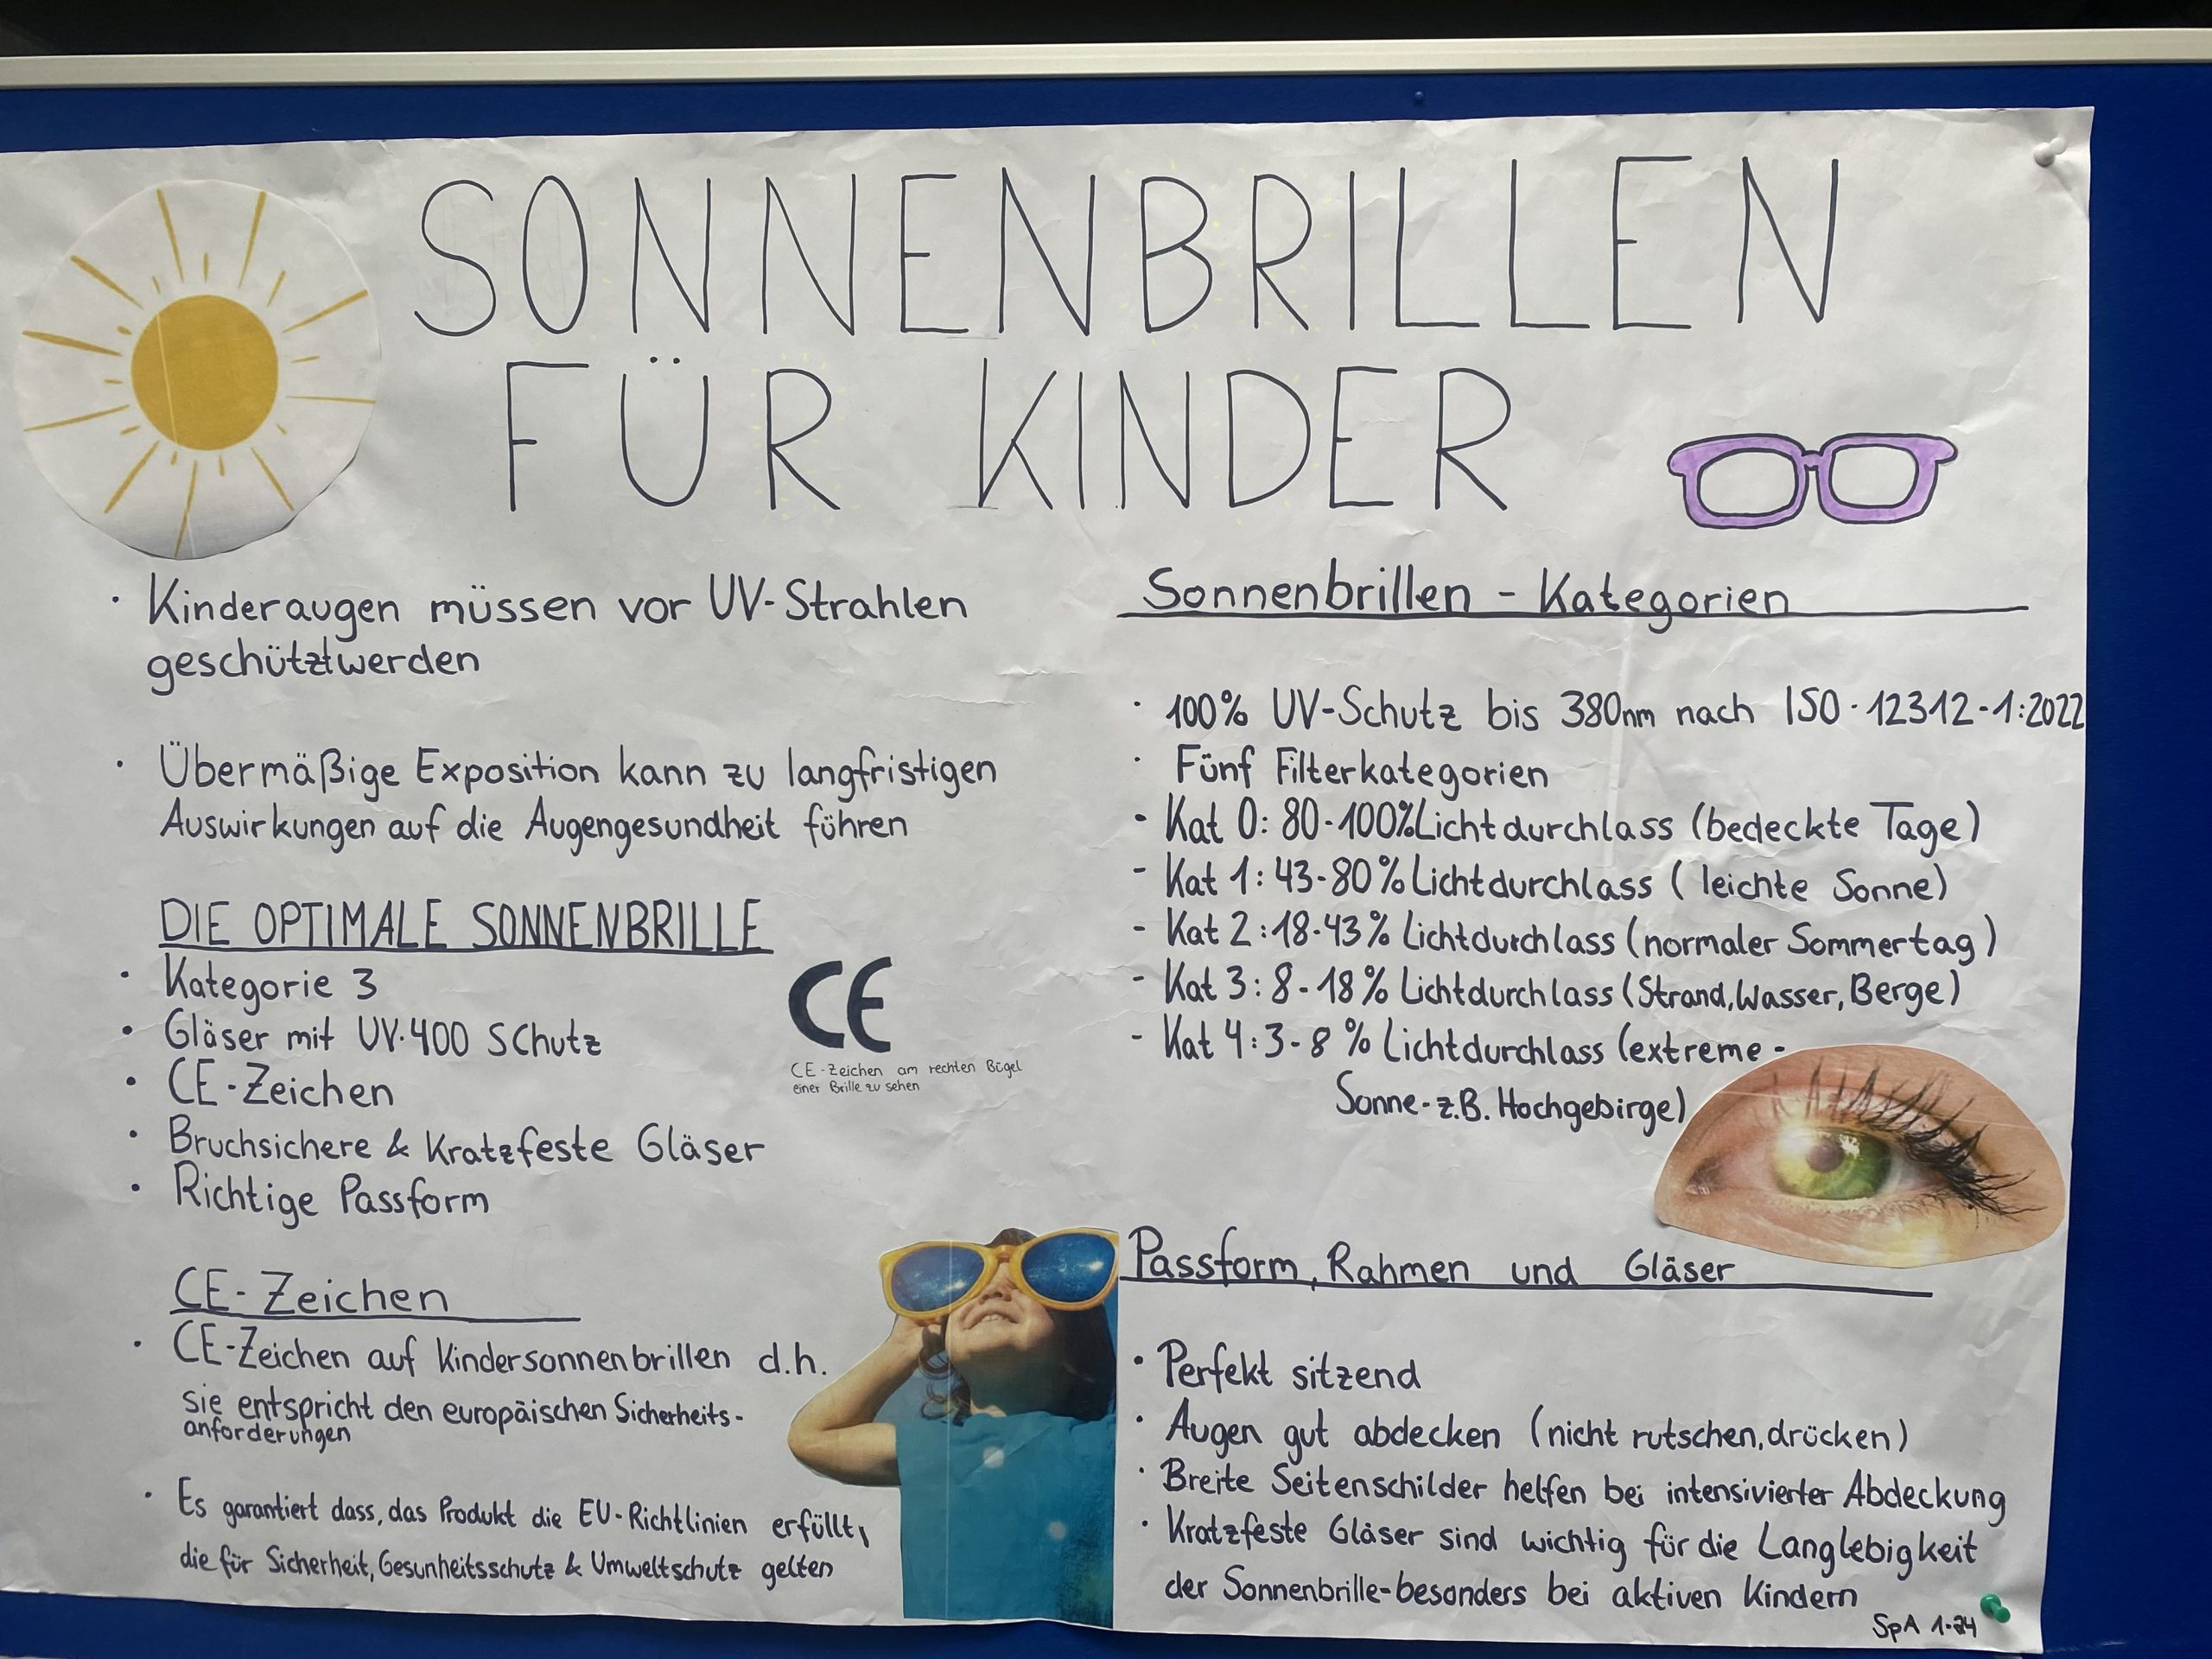 SONNENBRILLEN
FÜR KINDER
· Kinderaugen müssen vor UV-Strahlen
geschütztwerden
· Übermäßige Exposition kann zu langfristigen
Auswirkungen auf die Augengesundheit führen
DIE OPTIMALE SONNENBRILLE
· Kategorie 3
· Gläser mit UV-400 SChutz
· CE-Zeichen
· Bruchsichere & Kratzfeste Gläser
· Richtige Passform
CE
CE-Zeichen am rechten Bügel
einer Brille zu sehen
CE-Zeichen
· CE-Zeichen auf Kindersonnenbrillen d.h.
sie entspricht den europäischen Sicherheits-
anforderungen
· Es garantiert dass, das Produkt die EU-Richtlinien erfüllt,
die für Sicherheit, Gesunheitsschutz & Umweltschutz gelten
Sonnenbrillen - Kategorien
· 100% UV-Schutz bis 380nm nach ISO-12312-1:2022
· Fünf Filterkategorien
- Kat 0: 80-100% Lichtdurchlass (bedeckte Tage)
- Kat 1: 43-80% Lichtdurchlass (leichte Sonne)
- Kat 2: 18-43% Lichtdurchlass (normaler Sommertag)
- Kat 3: 8-18% Lichtdurchlass (Strand, Wasser, Berge)
- Kat 4: 3-8 % Lichtdurchlass (extreme-
Sonne-z.B. Hochgebirge)
Passform, Rahmen und Gläser
· Perfekt sitzend
· Augen gut abdecken (nicht rutschen, drücken)
· Breite Seitenschilder helfen bei intensivierter Abdeckung
· Kratzfeste Gläser sind wichtig für die Langlebigkeit
der Sonnenbrille-besonders bei aktiven Kindern
SpA 1-24